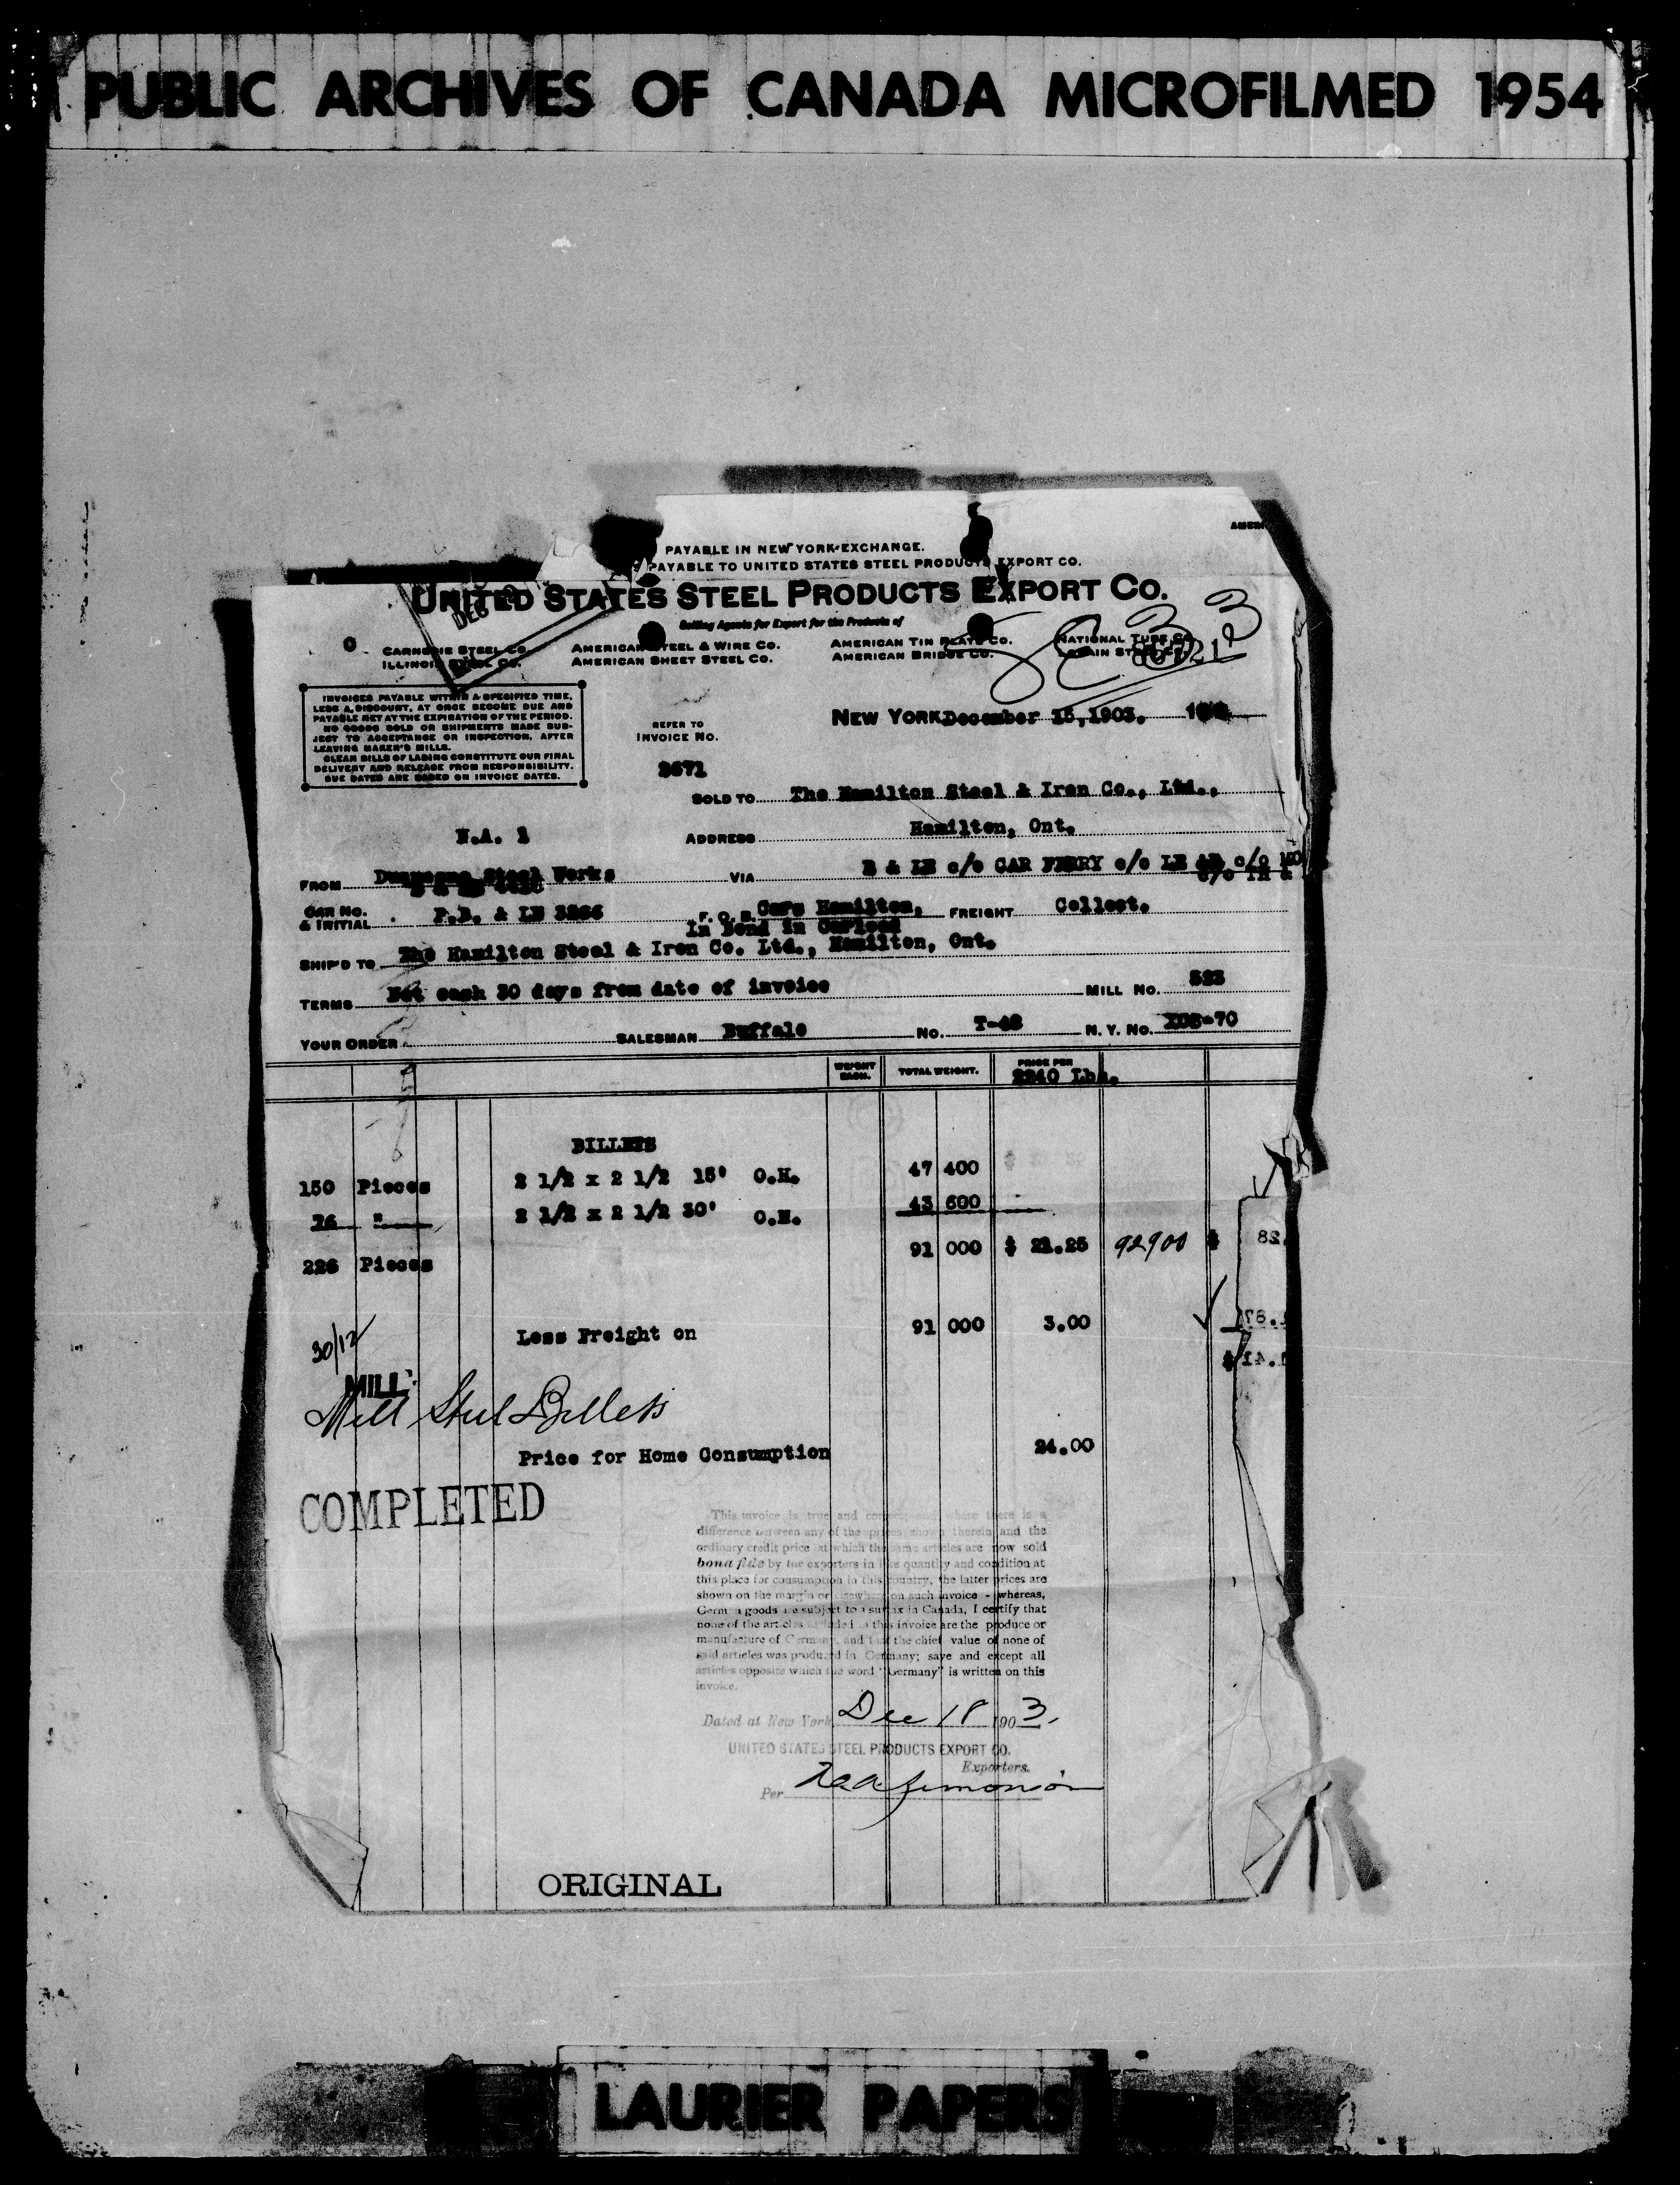 PUBLIC ARCHIVES OF CANADA MICROFILMED 1954
PAYABLE IN NEW YORK EXCHANGE.
PAYABLE TO UNITED STATES STEEL PRODUCTS EXPORT CO.
UNITED STATES STEEL PRODUCTS EXPORT CO.
Selling Agents for Export for the Products of
CARNEGIE STEEL CO. AMERICAN STEEL & WIRE CO. AMERICAN TIN PLATE CO. NATIONAL TUBE CO.
ILLINOIS STEEL CO. AMERICAN SHEET STEEL CO. AMERICAN BRIDGE CO. LORAIN STEEL CO.
INVOICES PAYABLE WITHIN A SPECIFIED TIME,
LESS A DISCOUNT, AT ONCE BECOME DUE AND
PAYABLE NET AT THE EXPIRATION OF THE PERIOD.
NO GOODS SOLD OR SHIPMENTS MADE SUB-
JECT TO ACCEPTANCE OR INSPECTION, AFTER
LEAVING MAKER'S MILLS.
CLEAR BILLS OF LADING CONSTITUTE OUR FINAL
DELIVERY AND RELEASE FROM RESPONSIBILITY.
DUE DATES ARE BASED ON INVOICE DATES.
NEW YORK, December 15, 1903.
REFER TO
INVOICE NO.
SOLD TO The Hamilton Steel & Iron Co., Ltd.,
N.A. 1 ADDRESS Hamilton, Ont.
FROM Duquesne Steel Works VIA B & LE c/o CAR FERRY c/o LE
CAR NO. & INITIAL P.B. & LE 3266 F. O. B. Cars Hamilton, FREIGHT Collect.
In Bond in Carload
SHIP'D TO The Hamilton Steel & Iron Co. Ltd., Hamilton, Ont.
TERMS Net cash 30 days from date of invoice MILL NO. 523
YOUR ORDER SALESMAN Buffalo NO. T-48 N. Y. NO. -70
WEIGHT EACH. TOTAL WEIGHT. PRICE PER
2240 Lbs.
BILLETS
150 Pieces 2 1/2 x 2 1/2 15' O.H. 47 400
76 " 2 1/2 x 2 1/2 30' O.H. 43 600
226 Pieces 91 000 $ 21.25 92900 $
30/12 Less Freight on 91 000 3.00
MILL
Mill Steel Billets
Price for Home Consumption 24.00
COMPLETED
This invoice is true and correct and where there is a
difference between any of the prices shown therein and the
ordinary credit price at which the same articles are now sold
bona fide by the exporters in like quantity and condition at
this place for consumption in this country, the latter prices are
shown on the margin or elsewhere on such invoice - whereas,
German goods are subject to a surtax in Canada, I certify that
none of the articles included in this invoice are the produce or
manufacture of Germany, and that the chief value of none of
said articles was produced in Germany; save and except all
articles opposite which the word "Germany" is written on this
invoice.
Dated at New York Dec 18 1903.
UNITED STATES STEEL PRODUCTS EXPORT CO.
Exporters.
Per
ORIGINAL
LAURIER PAPERS